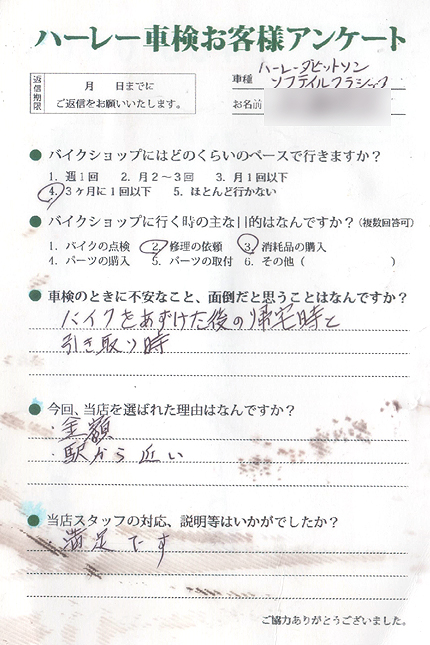 ハーレー車検お客様アンケート
返信期限
月　　日までに
ご返信をお願いいたします。
車種 ハーレーダビットソン
ソフテイルクラシック
お名前
● バイクショップにはどのくらいのペースで行きますか？
1. 週１回　2. 月２〜３回　3. 月１回以下
4. ３ヶ月に１回以下　5. ほとんど行かない
● バイクショップに行く時の主な目的はなんですか？(複数回答可)
1. バイクの点検　2. 修理の依頼　3. 消耗品の購入
4. パーツの購入　5. パーツの取付　6. その他（　　　　　　）
● 車検のときに不安なこと、面倒だと思うことはなんですか？
バイクをあずけた後の帰宅時と
引き取り時
● 今回、当店を選ばれた理由はなんですか？
・金額
・駅から近い
● 当店スタッフの対応、説明等はいかがでしたか？
・満足です
ご協力ありがとうございました。